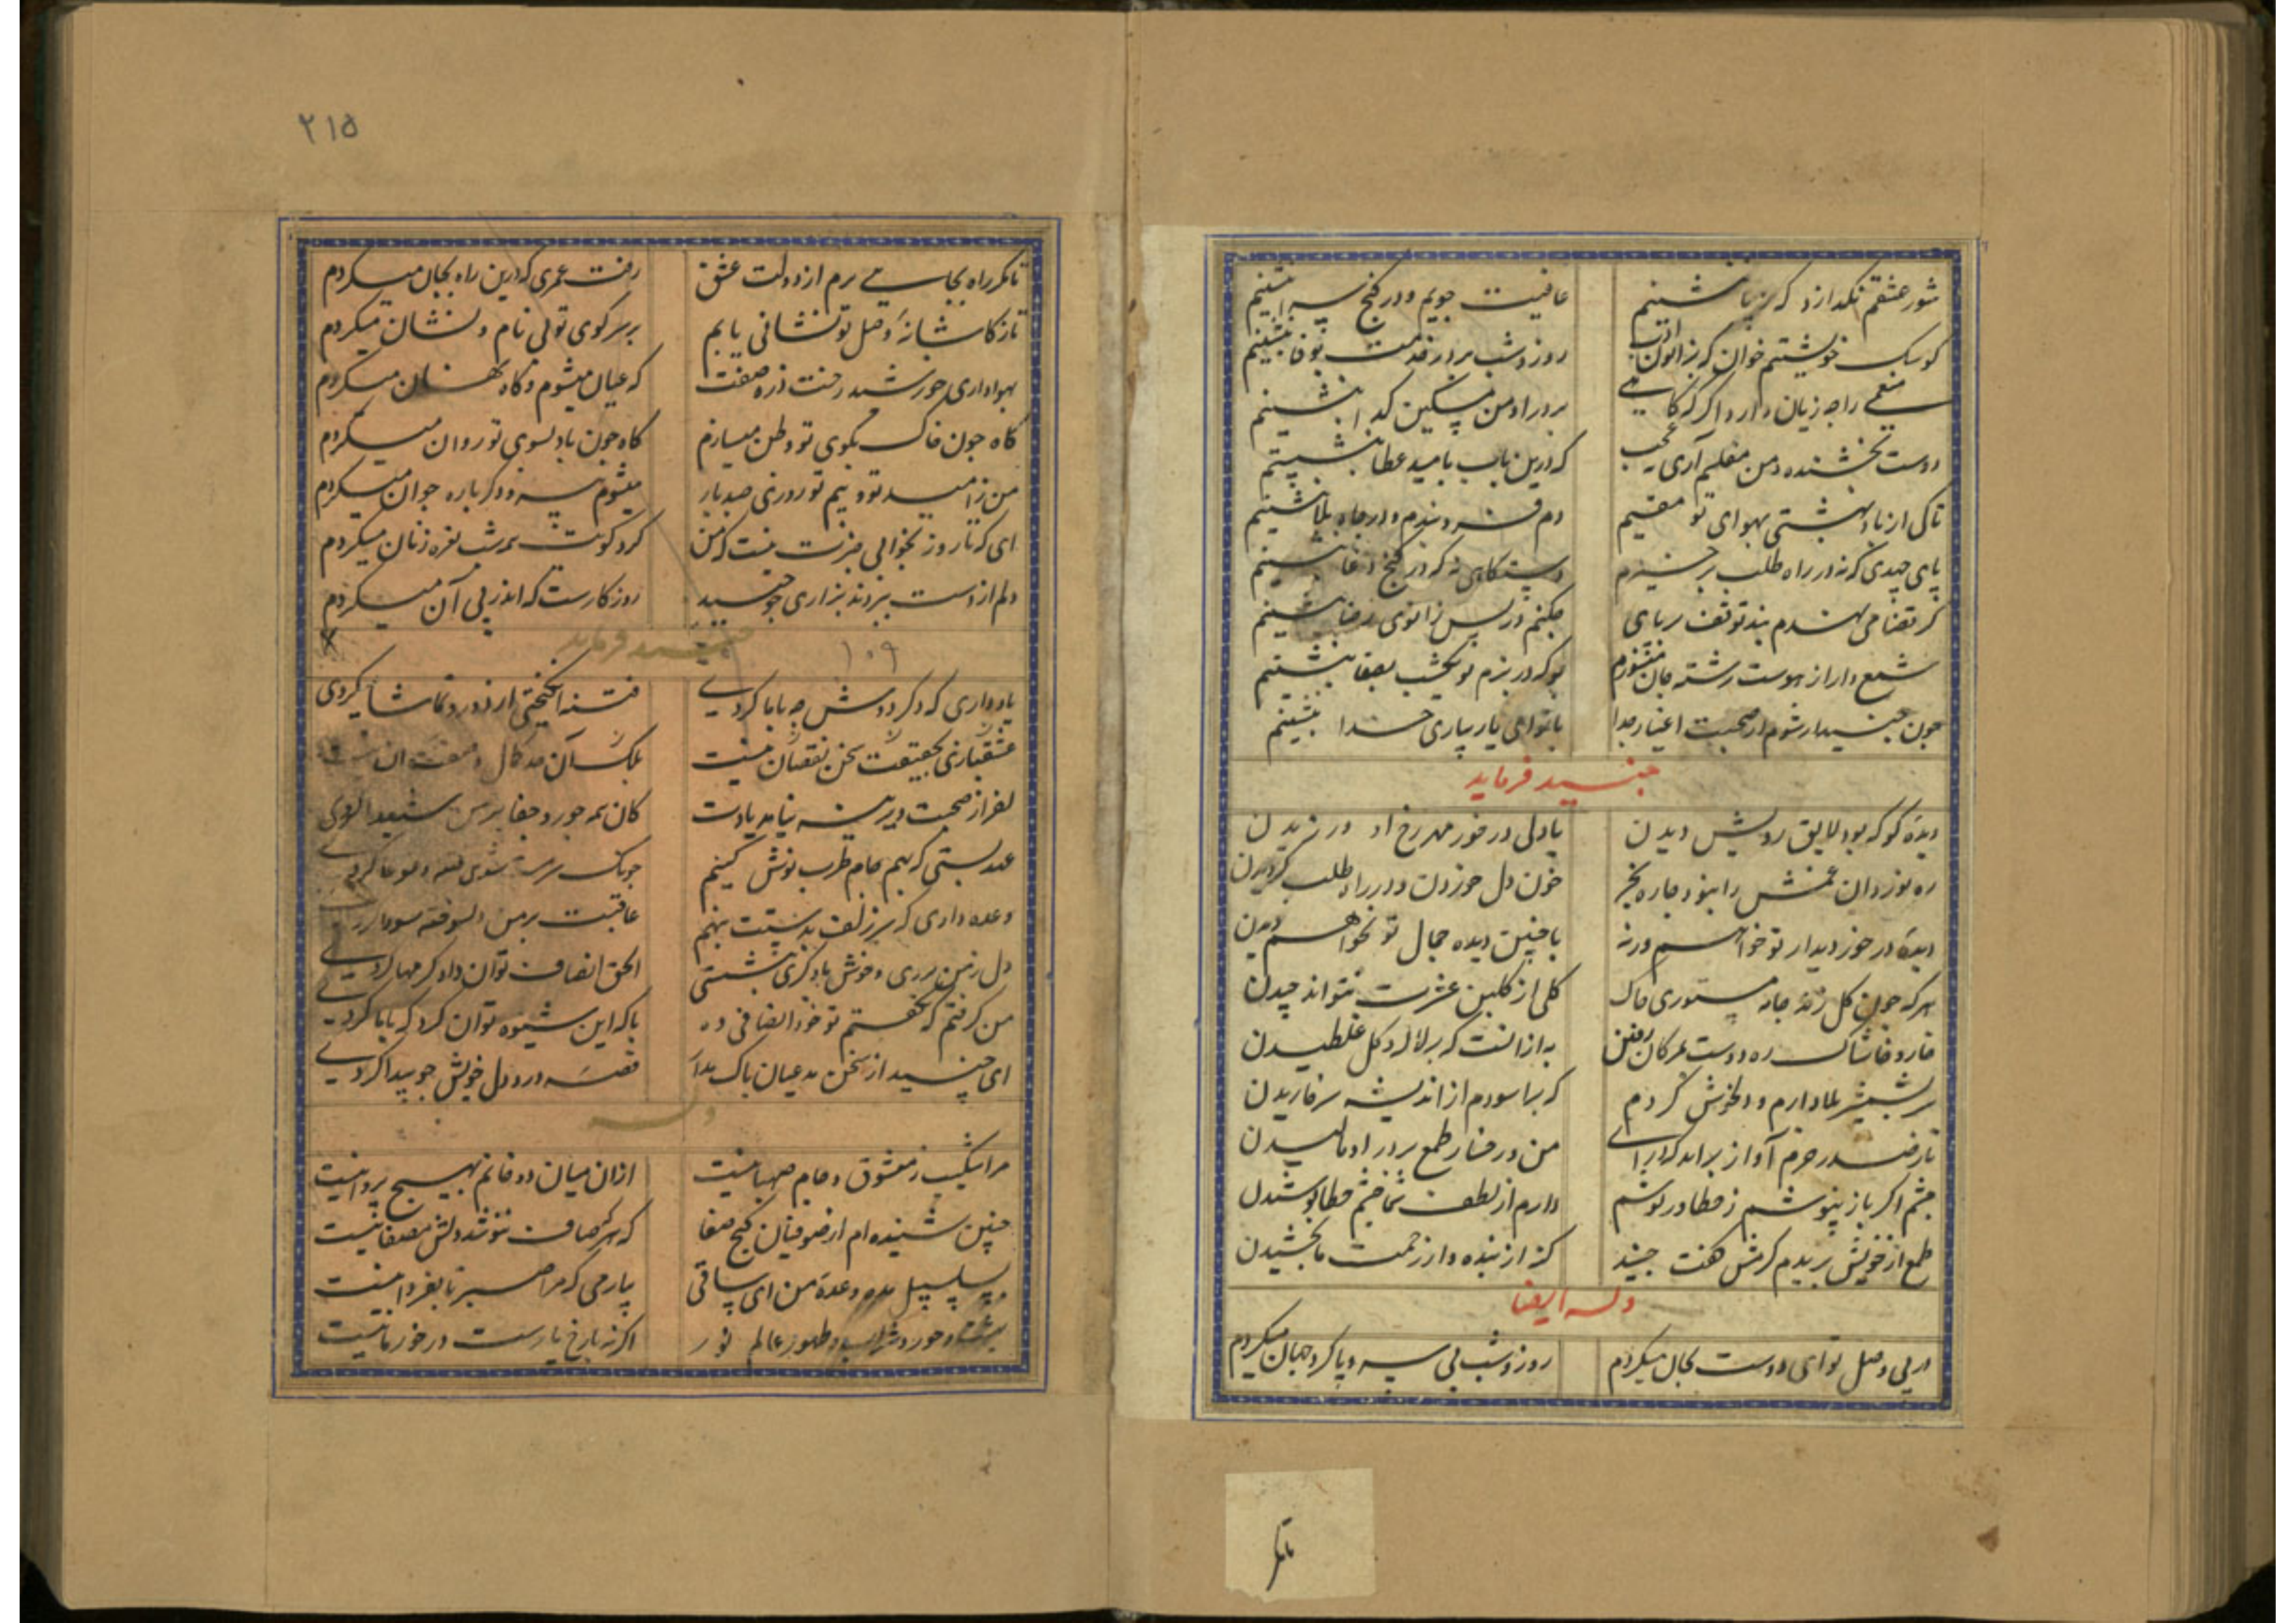 شور عشقم نگذارد که ز پا بنشینم عافیت جویم و در کنج سرا بنشینم
کو سک خویشتم خوان که بزانوی ادب روز و شب بر در قدمت بوفا بنشینم
منعمی را چه زیان دارد اگر که کاهی بر در او من مسکین کدا بنشینم
دوست بخشنده و من مفلسم آری چه عجب که درین باب بامید عطا بنشینم
تا کی از باد بهشتی بهوای تو مقیم دم فرو بندم و در چاه بلا بنشینم
پای جهدی که نه در راه طلب برخیزم دستکاهی نه که در کنج بنشینم
کر قضا می نهدم بند توقف بر پای چکنم در پس زانوی رضا بنشینم
شمع وار از هوست رشته جان میسوزم بو که در بزم تو یکشب بصفا بنشینم
چون جنید ار شوم از صحبت اغیار جدا با تو ای یار بیاری خدا بنشینم
جنید فرماید
دیده کو که بود لایق رویش دیدن یا دلی در خور مهر رخ او ورزیدن
ره نوردان غمش را نبود چاره بجز خون دل خوردن و در راه طلب کردیدن
دیده در خور دیدار تو خواهم ورنه با چنین دیده جمال تو نخواهم دیدن
هر که چون کل نزند جامه مستوری چاک کلی از کلبن عشرت نتواند چیدن
خار و خاشاک ره دوست بمژکان رفتن به از آنست که بر لاله و کل غلطیدن
سر بشمشیر بلا دارم و دلخوش کردم که بر آسودم از اندیشه سر خاریدن
تا ز صدر حرم آواز برآید که درآی من و رخسار طمع بر در او مالیدن
چشم اکر باز نپوشم ز خطا در کوشم دارم از لطف شما چشم خطا پوشیدن
طمع از خویش بریدم کرمش کفت جنید کنه از بنده و از رحمت ما بخشیدن
وله ایضا
در پی وصل تو ای دوست بجان میکردم روز و شب بی سر و پا کرد جهان میکردم
تا مکر
۲۱۵
تا مکر راه بجایی برم از دولت عشق رفت عمری که درین راه بجان میکردم
تا ز کاشانه وصل تو نشانی یابم بر سر کوی تو بی نام و نشان میکردم
بهواداری خورشید رخت ذره صفت که عیان میشوم و کاه نهان میکردم
کاه چون خاک بکوی تو وطن میسازم کاه چون باد بسوی تو روان میکردم
من ز امید تو و بیم تو روزی صد بار میشوم پیر و دکر باره جوان میکردم
ای که تا روز بخوابی خبرت نیست که من کرد کویت همه شب نعره زنان میکردم
دلم از دست ببردند بزاری چو جنید روزکارست که اندر پی آن میکردم
جنید فرماید ۱۰۹
یاد داری که دکر دوش چه با ما کردی فتنه انکیختی از دور و تماشا کردی
عشقبازی بحقیقت سخن نقصان نیست بلک آن
مکر از صحبت دیرینه نیامد یادت کان همه جور و جفا بر من شیدا کردی
عهد بستی که بهم جام طرب نوش کنیم چونک سرمست شدی
وعده دادی که سر زلف بدستت بنهم عاقبت بر من دلسوخته سودا کردی
دل ز من بردی و خوش با دکری بنشستی الحق انصاف توان داد که مها کردی
من کرفتم که نکفتم تو خود انصافی ده با که این شیوه توان کرد که با ما کردی
ای جنید از سخن قصه درد دل خویش چو پیدا کردی
وله
مرا شکیب ز معشوق و جام صهبا نیست ازان میان دو فانم بهیچ پروا نیست
چنین شنیده ام از صوفیان کنج صفا که هر که صاف ننوشد دلش مصفا نیست
بسلسبیل مده وعده من ای ساقی بیار می که مرا صبر تا بفردا نیست
بهشت و حور و شراب و طهور عالم نور اکر نه با رخ یارست در خور ما نیست